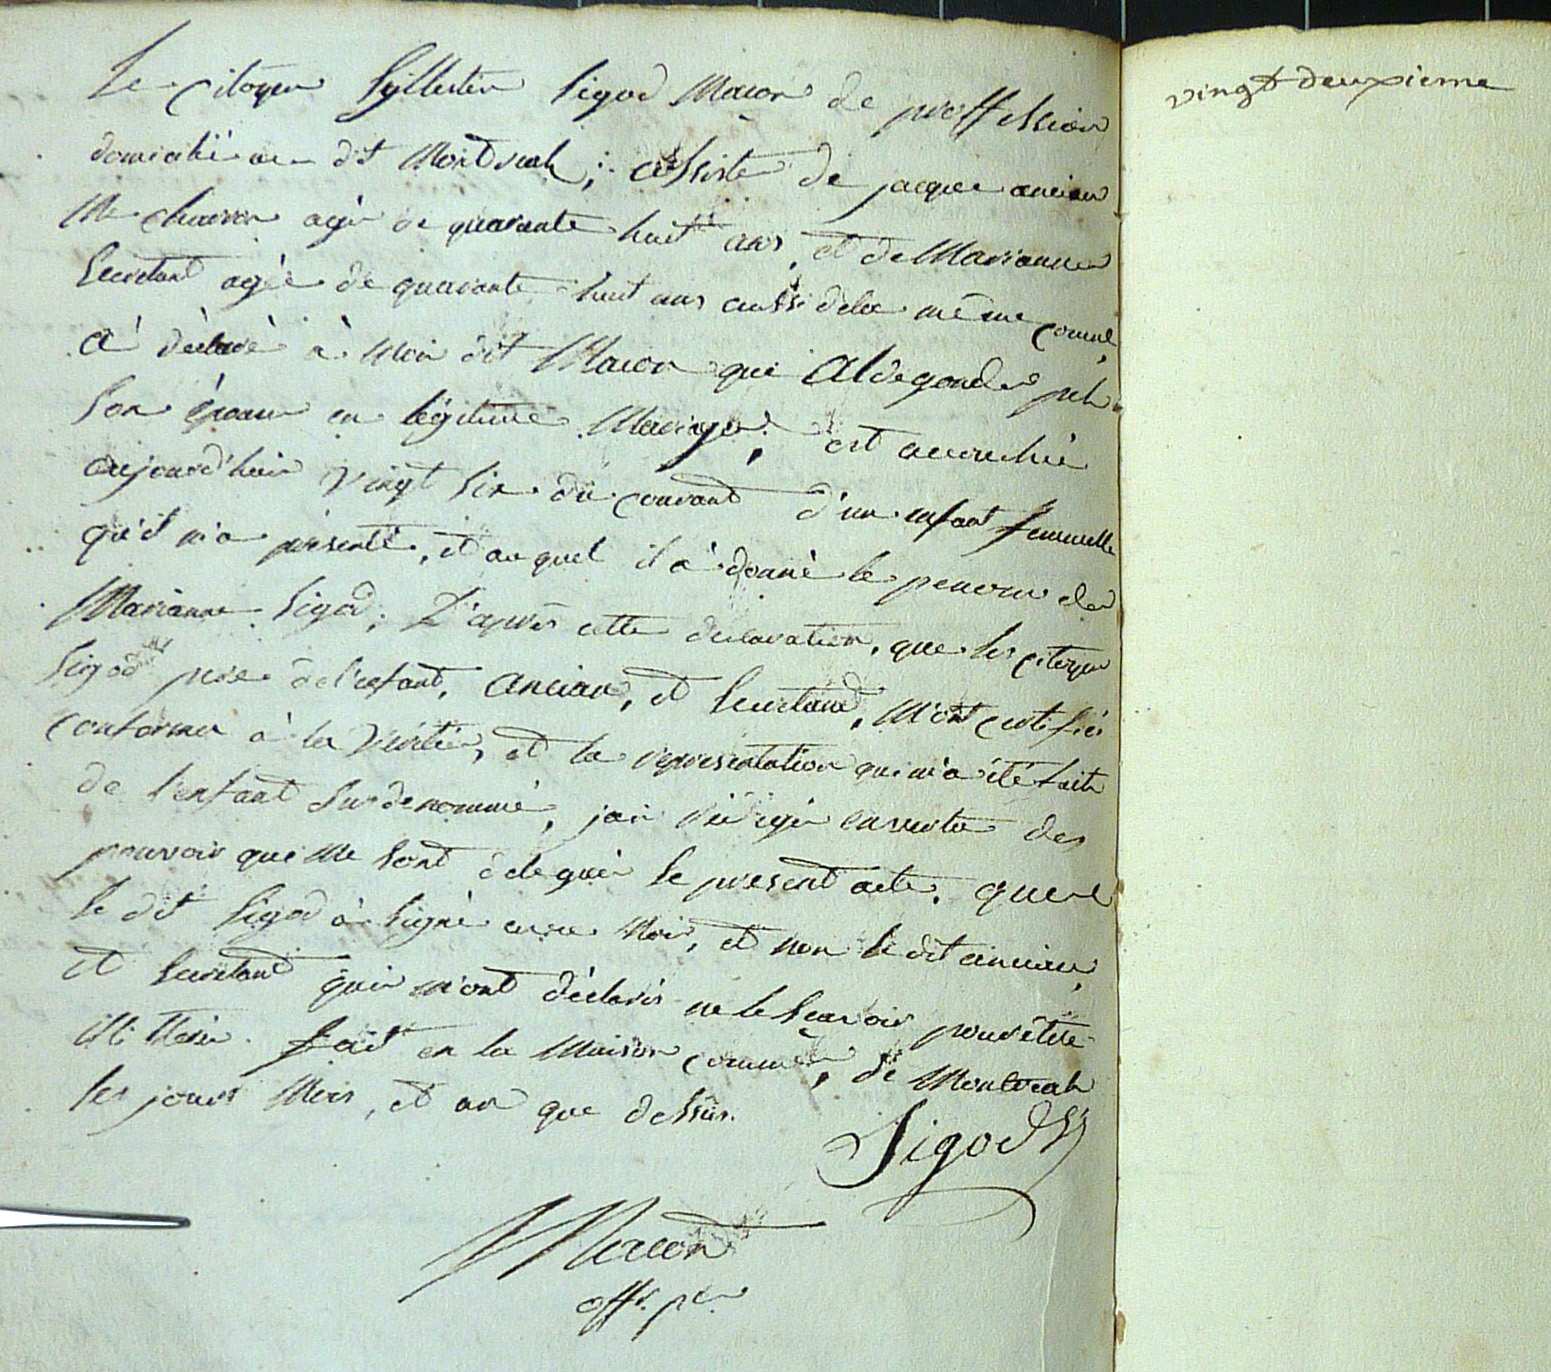 Le citoyen Syllestre Sigod Macon de proffession
domicilié au dit Montreal; assisté de jacque ancian
Me charon agé de quarante huit ans, et de Marianne
Secretant agée de quarante huit ans aussi de la même comne,
à déclaré à Moi dit Macon que Aldegonde
son épouse en légitime Mariage, est accouchée
aujourd'huis vingt six du courant d'un enfant femmelle
qu'il m'a présenté, et au quel il à donné le penom de
Marianne Sigod; D'après cette declaration, que les citoyen
Sigod pere de l'enfant, ancian, et Secretand, M'ont certifié
conforme à la Vérité, et la representation qui m'a été faite
de l'enfant Sus denommé, jai rédigé en vertu des
pouvoir que me sont delegués le present acte, que
le dit Sigod à signé avec Moi, et non le dit ancian,
et Secretand qui m'ont déclarés ne le sçavoir pour être
illittéré. fait en la Maison comune, de Montreal
les jours Mois, et an que dessus.
Sigod
Macon
off. p.
vingt-deuxieme